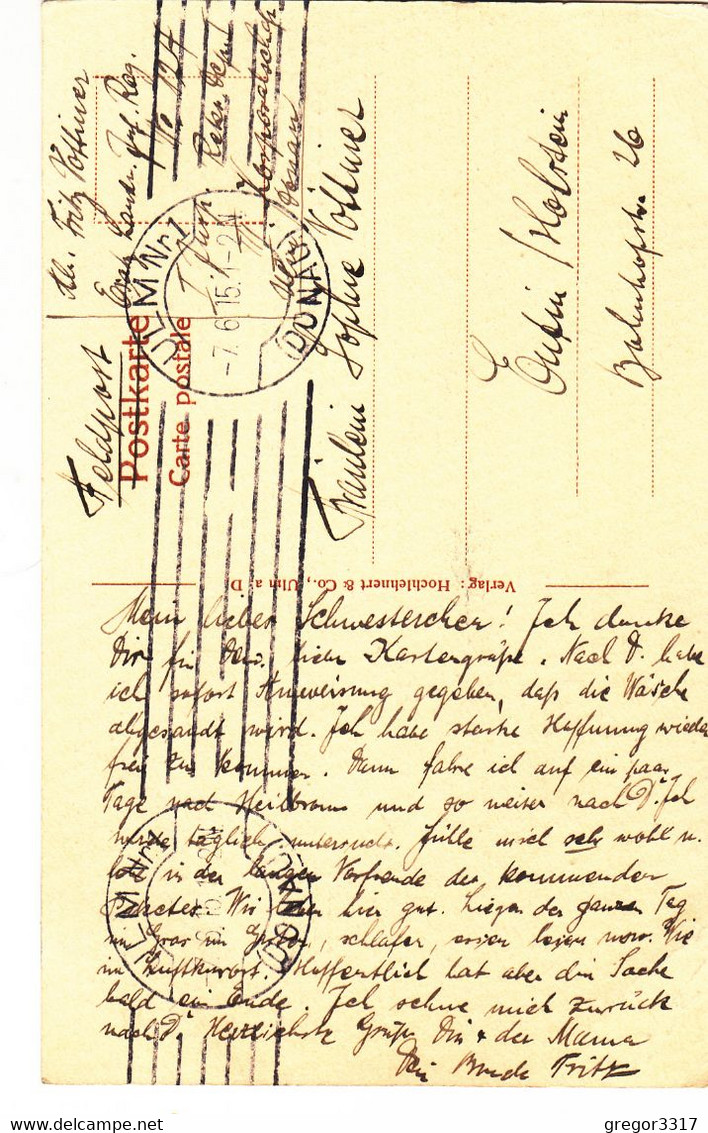 Feldpost
Postkarte
Carte postale
Abs. Fritz Vottiner
Ers. Landw. Inf. Reg.
No 124
ULM Nr 1
-7.6.15.1-2N
(DONAU)
Fräulein Sophie Vottiner
Eutin / Holstein
Bahnhofstr. 26
Verlag: Hochlehnert & Co., Ulm a. D
Mein lieber Schwesterchen! Ich danke
Dir für Dein. lieben Kartengrüße. Nach D. habe
ich sofort Anweisung gegeben, daß die Wäsche
abgesandt wird. Ich habe starke Hoffnung wieder
frei zu kommen. Dann fahre ich auf ein paar
Tage nach Heilbronn und so weiter nach D. Ich
werde täglich untersucht. Fühle mich sehr wohl u.
in der langen Vorfreude der kommenden
Wir leben hier gut. Liegen den ganzen Tag
im Gras im Garten, schlafen, essen lesen usw. Wie
im Luftkurort. Hoffentlich hat aber die Sache
bald ein Ende. Ich sehne mich zurück
nach D. Herzlichste Grüße Dir & der Mama
Dein Bruder Fritz
ULM Nr 1
(DONAU)
gregor3317